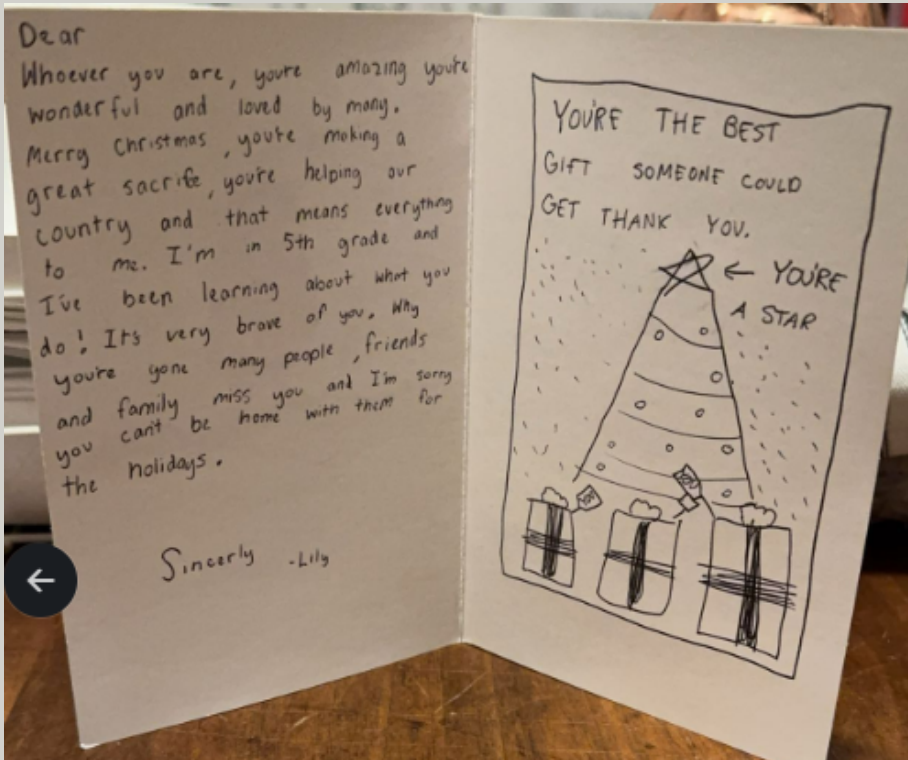 Dear
Whoever you are, you're amazing you're
wonderful and loved by many.
Merry Christmas, you're making a
great sacrife, you're helping our
country and that means everything
to me. I'm in 5th grade and
I've been learning about what you
do! It's very brave of you. Why
you're gone many people, friends
and family miss you and I'm sorry
you can't be home with them for
the holidays.
Sincerly -Lily
YOU'RE THE BEST
GIFT SOMEONE COULD
GET THANK YOU.
← YOU'RE
A STAR